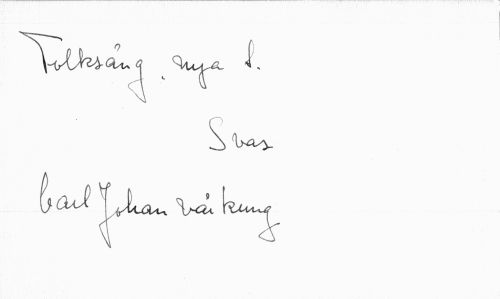 Folksång, nya s.
Svas
Carl Johan vår kung